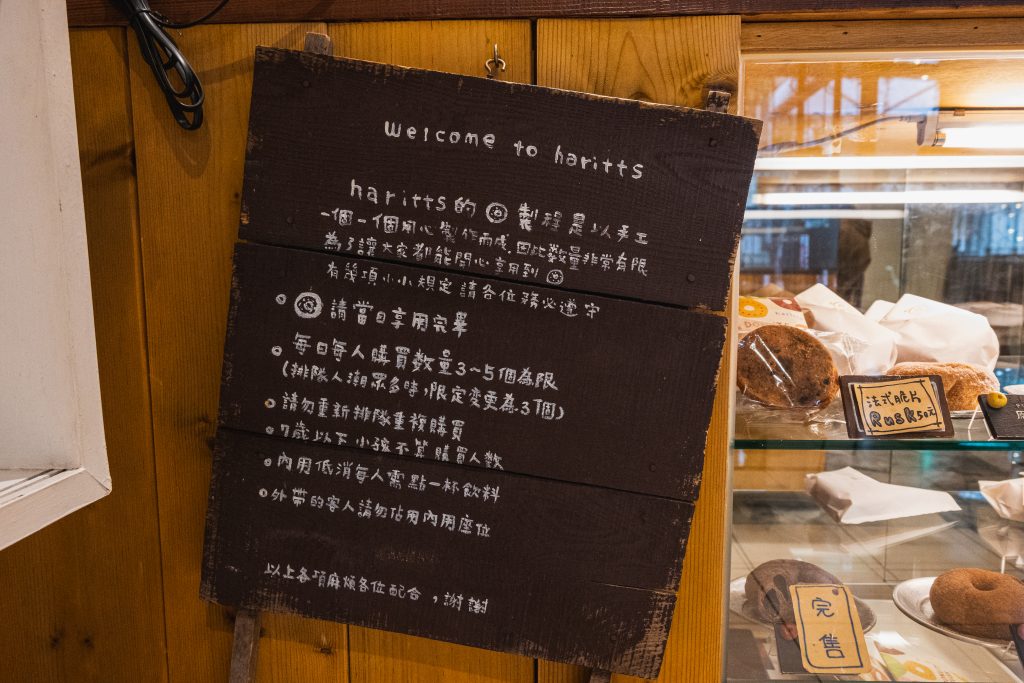 welcome to haritts
haritts的 製程是以手工
一個一個用心製作而成,因此數量非常有限
為了讓大家都能開心享用到
有幾項小小規定 請各位務必遵守
請當日享用完畢
每日每人購買數量3~5個為限
(排隊人潮眾多時,限定變更為3個)
請勿重新排隊重複購買
7歲以下小孩不算購買人數
內用低消每人需點一杯飲料
外帶的客人請勿佔用內用座位
以上各項麻煩各位配合,謝謝
法式脆片
Rusk 50元
完售